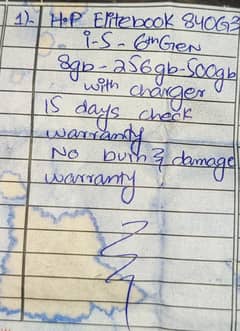 1)- H.P Elitebook 840G3
i-5 - 6thGen
8gb-256gb-500gb
with charger
15 days check
warranty
No burn & damage
warranty